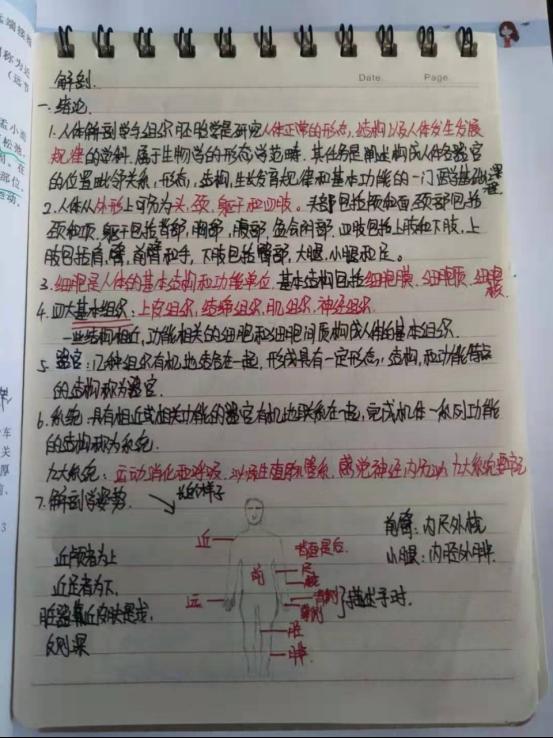 解剖.
Date.
Page.
一. 绪论.
1. 人体解剖学与组织胚胎学是研究人体正常的形态, 结构以及人体发生发展
规律的学科. 属于生物学的形态学范畴. 其任务是阐述构成人体各器官
的位置毗邻关系, 形态, 结构, 生长发育规律和基本功能的一门医学基础课程
2. 人体从外形上可分为头, 颈, 躯干和四肢。头部包括颅和面 颈部包括
颈和项, 躯干包括背部, 胸部, 腹部, 盆会阴部, 四肢包括上肢和下肢, 上
肢包括肩, 臂, 前臂和手, 下肢包括臀部, 大腿, 小腿和足。
3. 细胞是人体的基本结构和功能单位. 基本结构包括细胞膜. 细胞质. 细胞核.
4. 四大基本组织: 上皮组织, 结缔组织, 肌组织, 神经组织
一些结构相近, 功能相关的细胞和细胞间质构成人体的基本组织.
5. 器官: 几种组织有机地结合在一起, 形成具有一定形态, 结构, 和功能特点
的结构称为器官.
6. 系统 具有相近或相关功能的器官有机地联系在一起, 完成机体一系列功能
的结构称为系统.
九大系统: 运动消化和呼吸, 泌尿生殖脉管系, 感觉神经内分泌, 九大系统要牢记
7. 解剖学姿势
站的样子
近
背面是后.
前
尺
桡
远
描述手时.
胫
腓
前臂: 内尺外桡
小腿: 内胫外腓.
近颅者为上
近足者为下.
脏器靠近皮肤是浅,
反则深